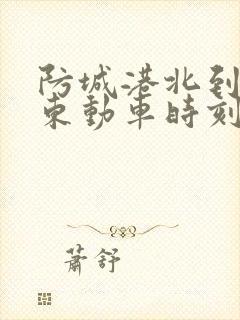 防城港北到
東動車時刻
蕭舒